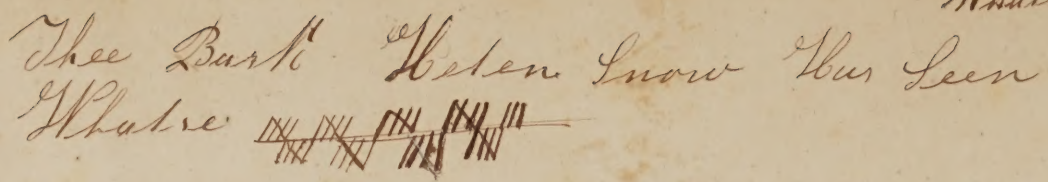 Thee Bark Helen Snow Has Seen
Whalse